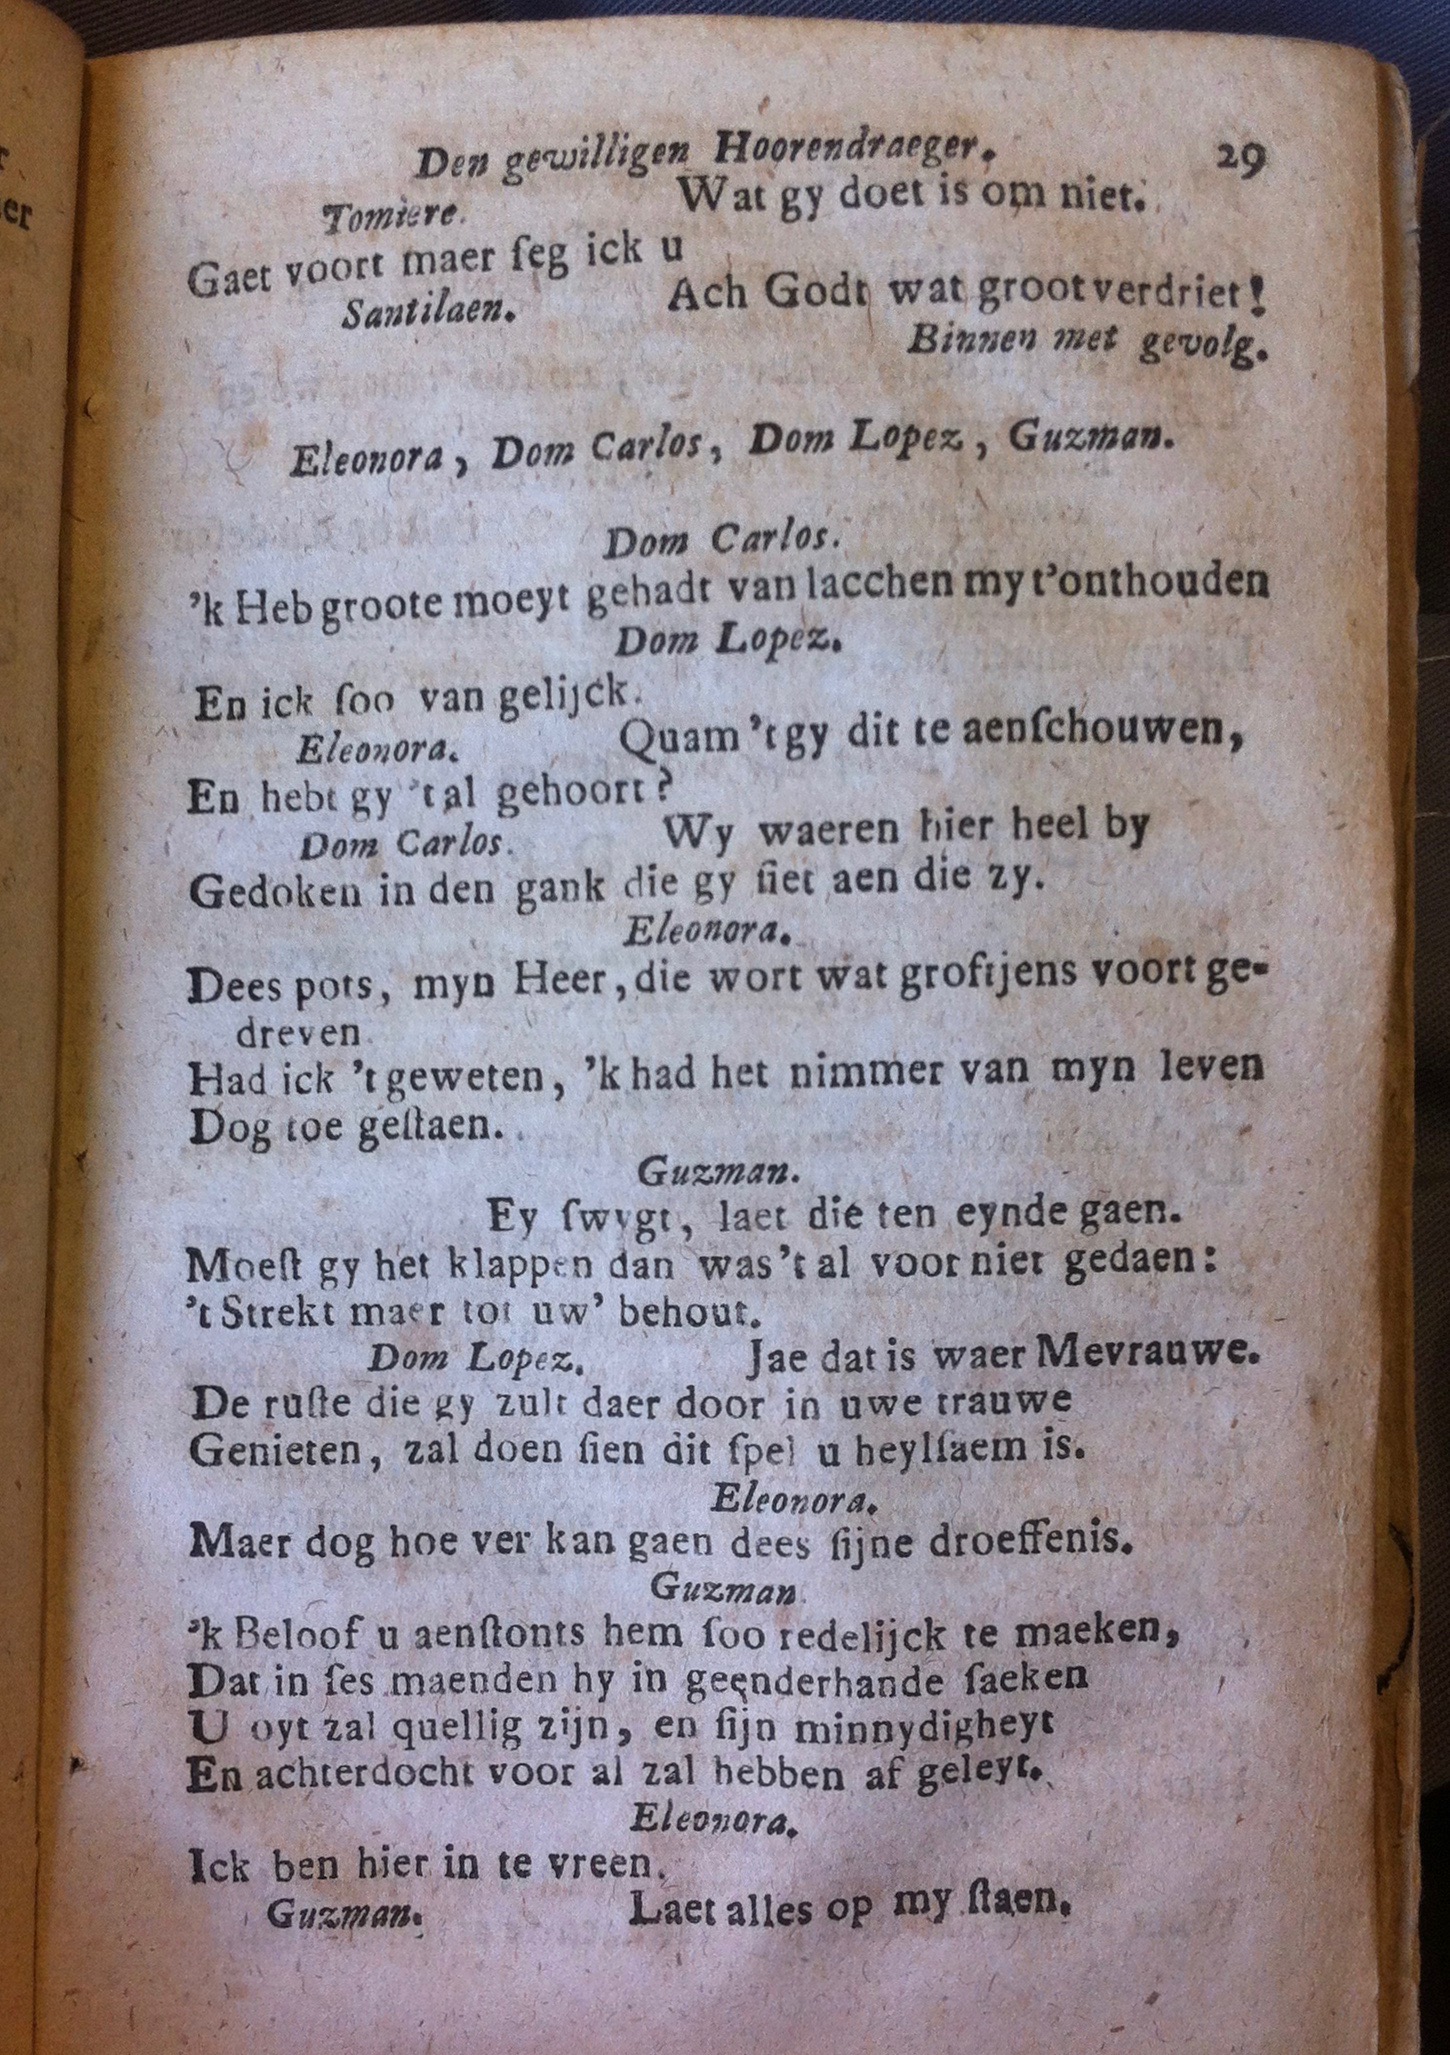 Den gewilligen Hoorendraeger. 29
Tomiere. Wat gy doet is om niet.
Gaet voort maer ſeg ick u
Santilaen. Ach Godt wat groot verdriet!
Binnen met gevolg.
Eleonora, Dom Carlos, Dom Lopez, Guzman.
Dom Carlos.
'k Heb groote moeyt gehadt van lacchen my t'onthouden
Dom Lopez.
En ick ſoo van gelijck.
Eleonora. Quam 't gy dit te aenſchouwen,
En hebt gy 't al gehoort?
Dom Carlos. Wy waeren hier heel by
Gedoken in den gank die gy ſiet aen die zy.
Eleonora.
Dees pots, myn Heer, die wort wat groftjens voort ge-
dreven
Had ick 't geweten, 'k had het nimmer van myn leven
Dog toe geſtaen.
Guzman.
Ey ſwygt, laet die ten eynde gaen.
Moeſt gy het klappen dan was 't al voor niet gedaen:
't Strekt maer tot uw' behout.
Dom Lopez. Jae dat is waer Mevrauwe.
De ruſte die gy zult daer door in uwe trauwe
Genieten, zal doen ſien dit ſpel u heylſaem is.
Eleonora.
Maer dog hoe ver kan gaen dees ſijne droeffenis.
Guzman.
'k Beloof u aenſtonts hem ſoo redelijck te maeken,
Dat in ſes maenden hy in geenderhande ſaeken
U oyt zal quellig zijn, en ſijn minnydigheyt
En achterdocht voor al zal hebben af geleyt.
Eleonora.
Ick ben hier in te vreen.
Guzman. Laet alles op my ſtaen.